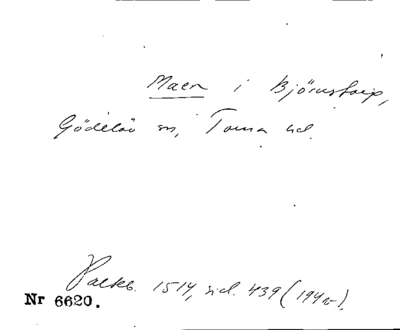 Maen i Björnstorp,
Gödelöv sn, Torna hd.
Palteb. 1514, sid. 439 (194v).
Nr 6620.